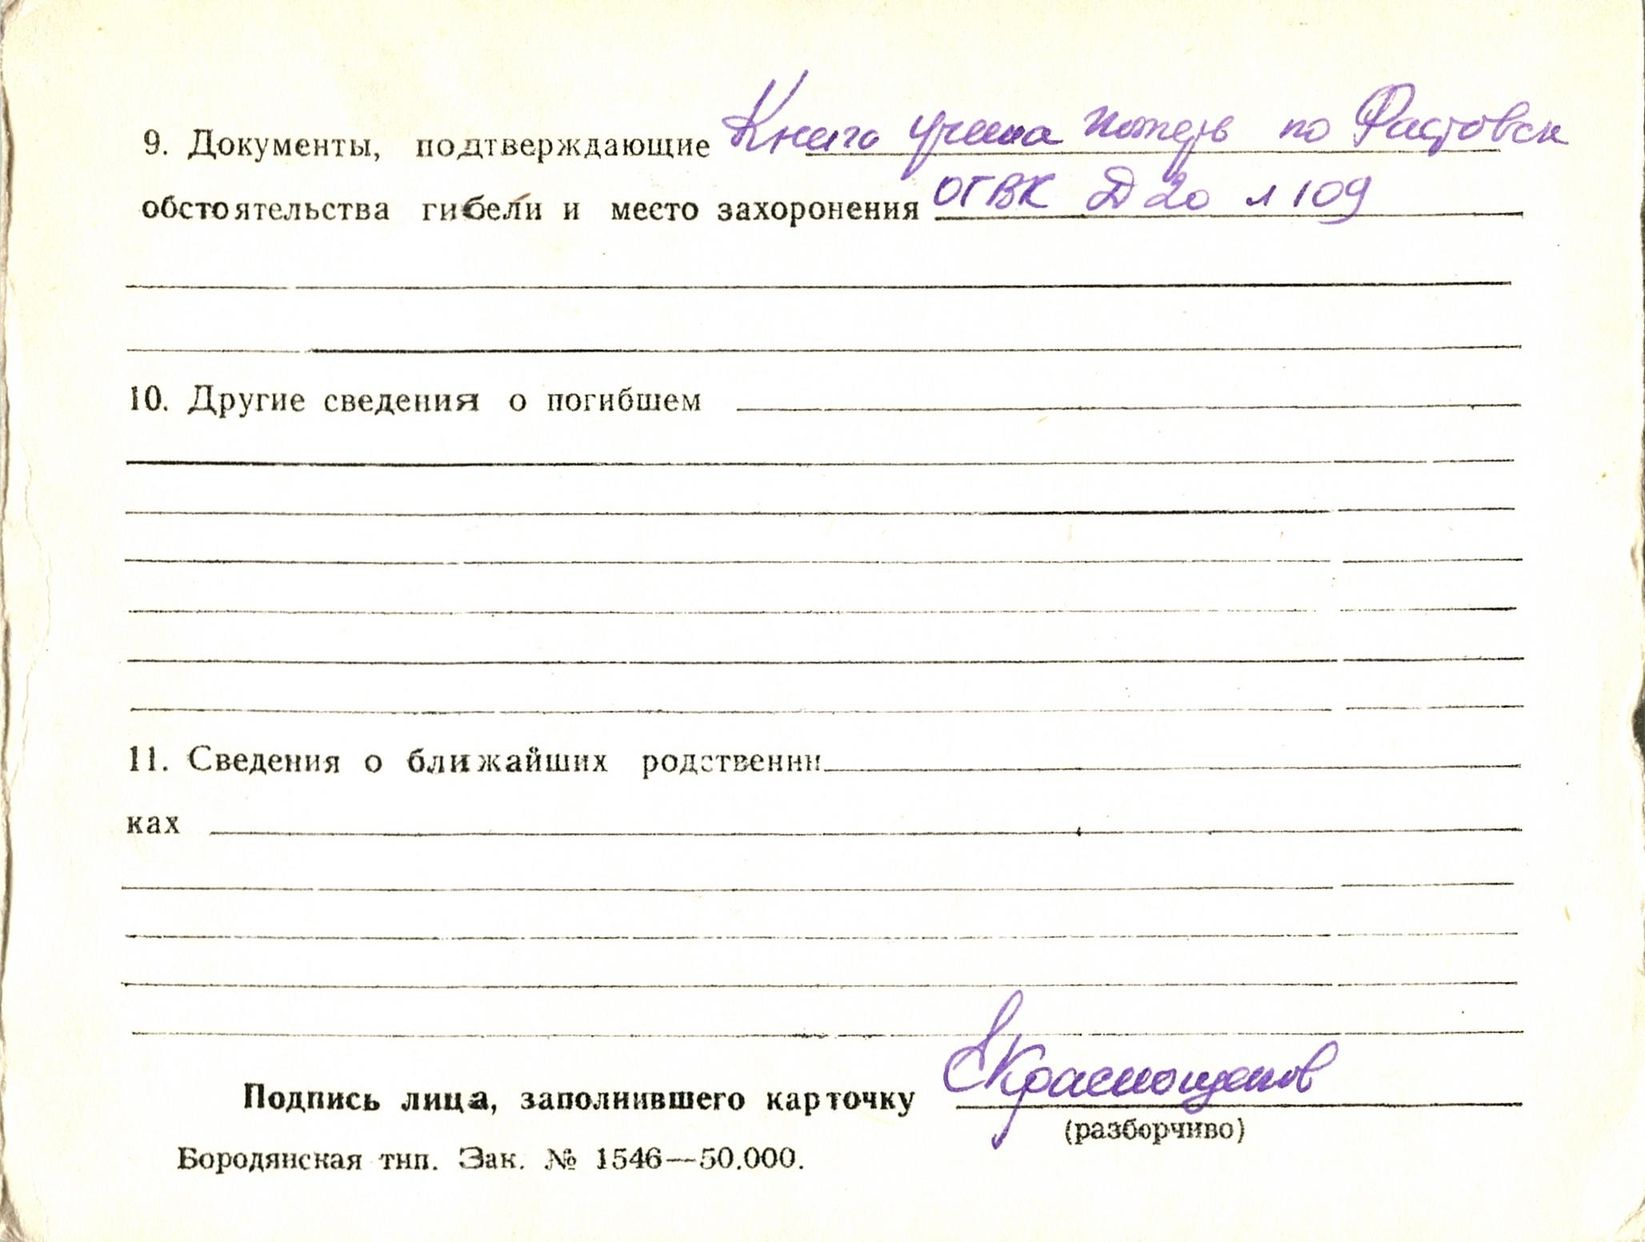 9. Документы, подтверждающие Книга учета потерь по Фастовск
обстоятельства гибели и место захоронения ОГВК Д 20 л 109
10. Другие сведения о погибшем
11. Сведения о ближайших родственни
ках
Подпись лица, заполнившего карточку Краснощеков
(разборчиво)
Бородянская тип. Зак. № 1546—50.000.